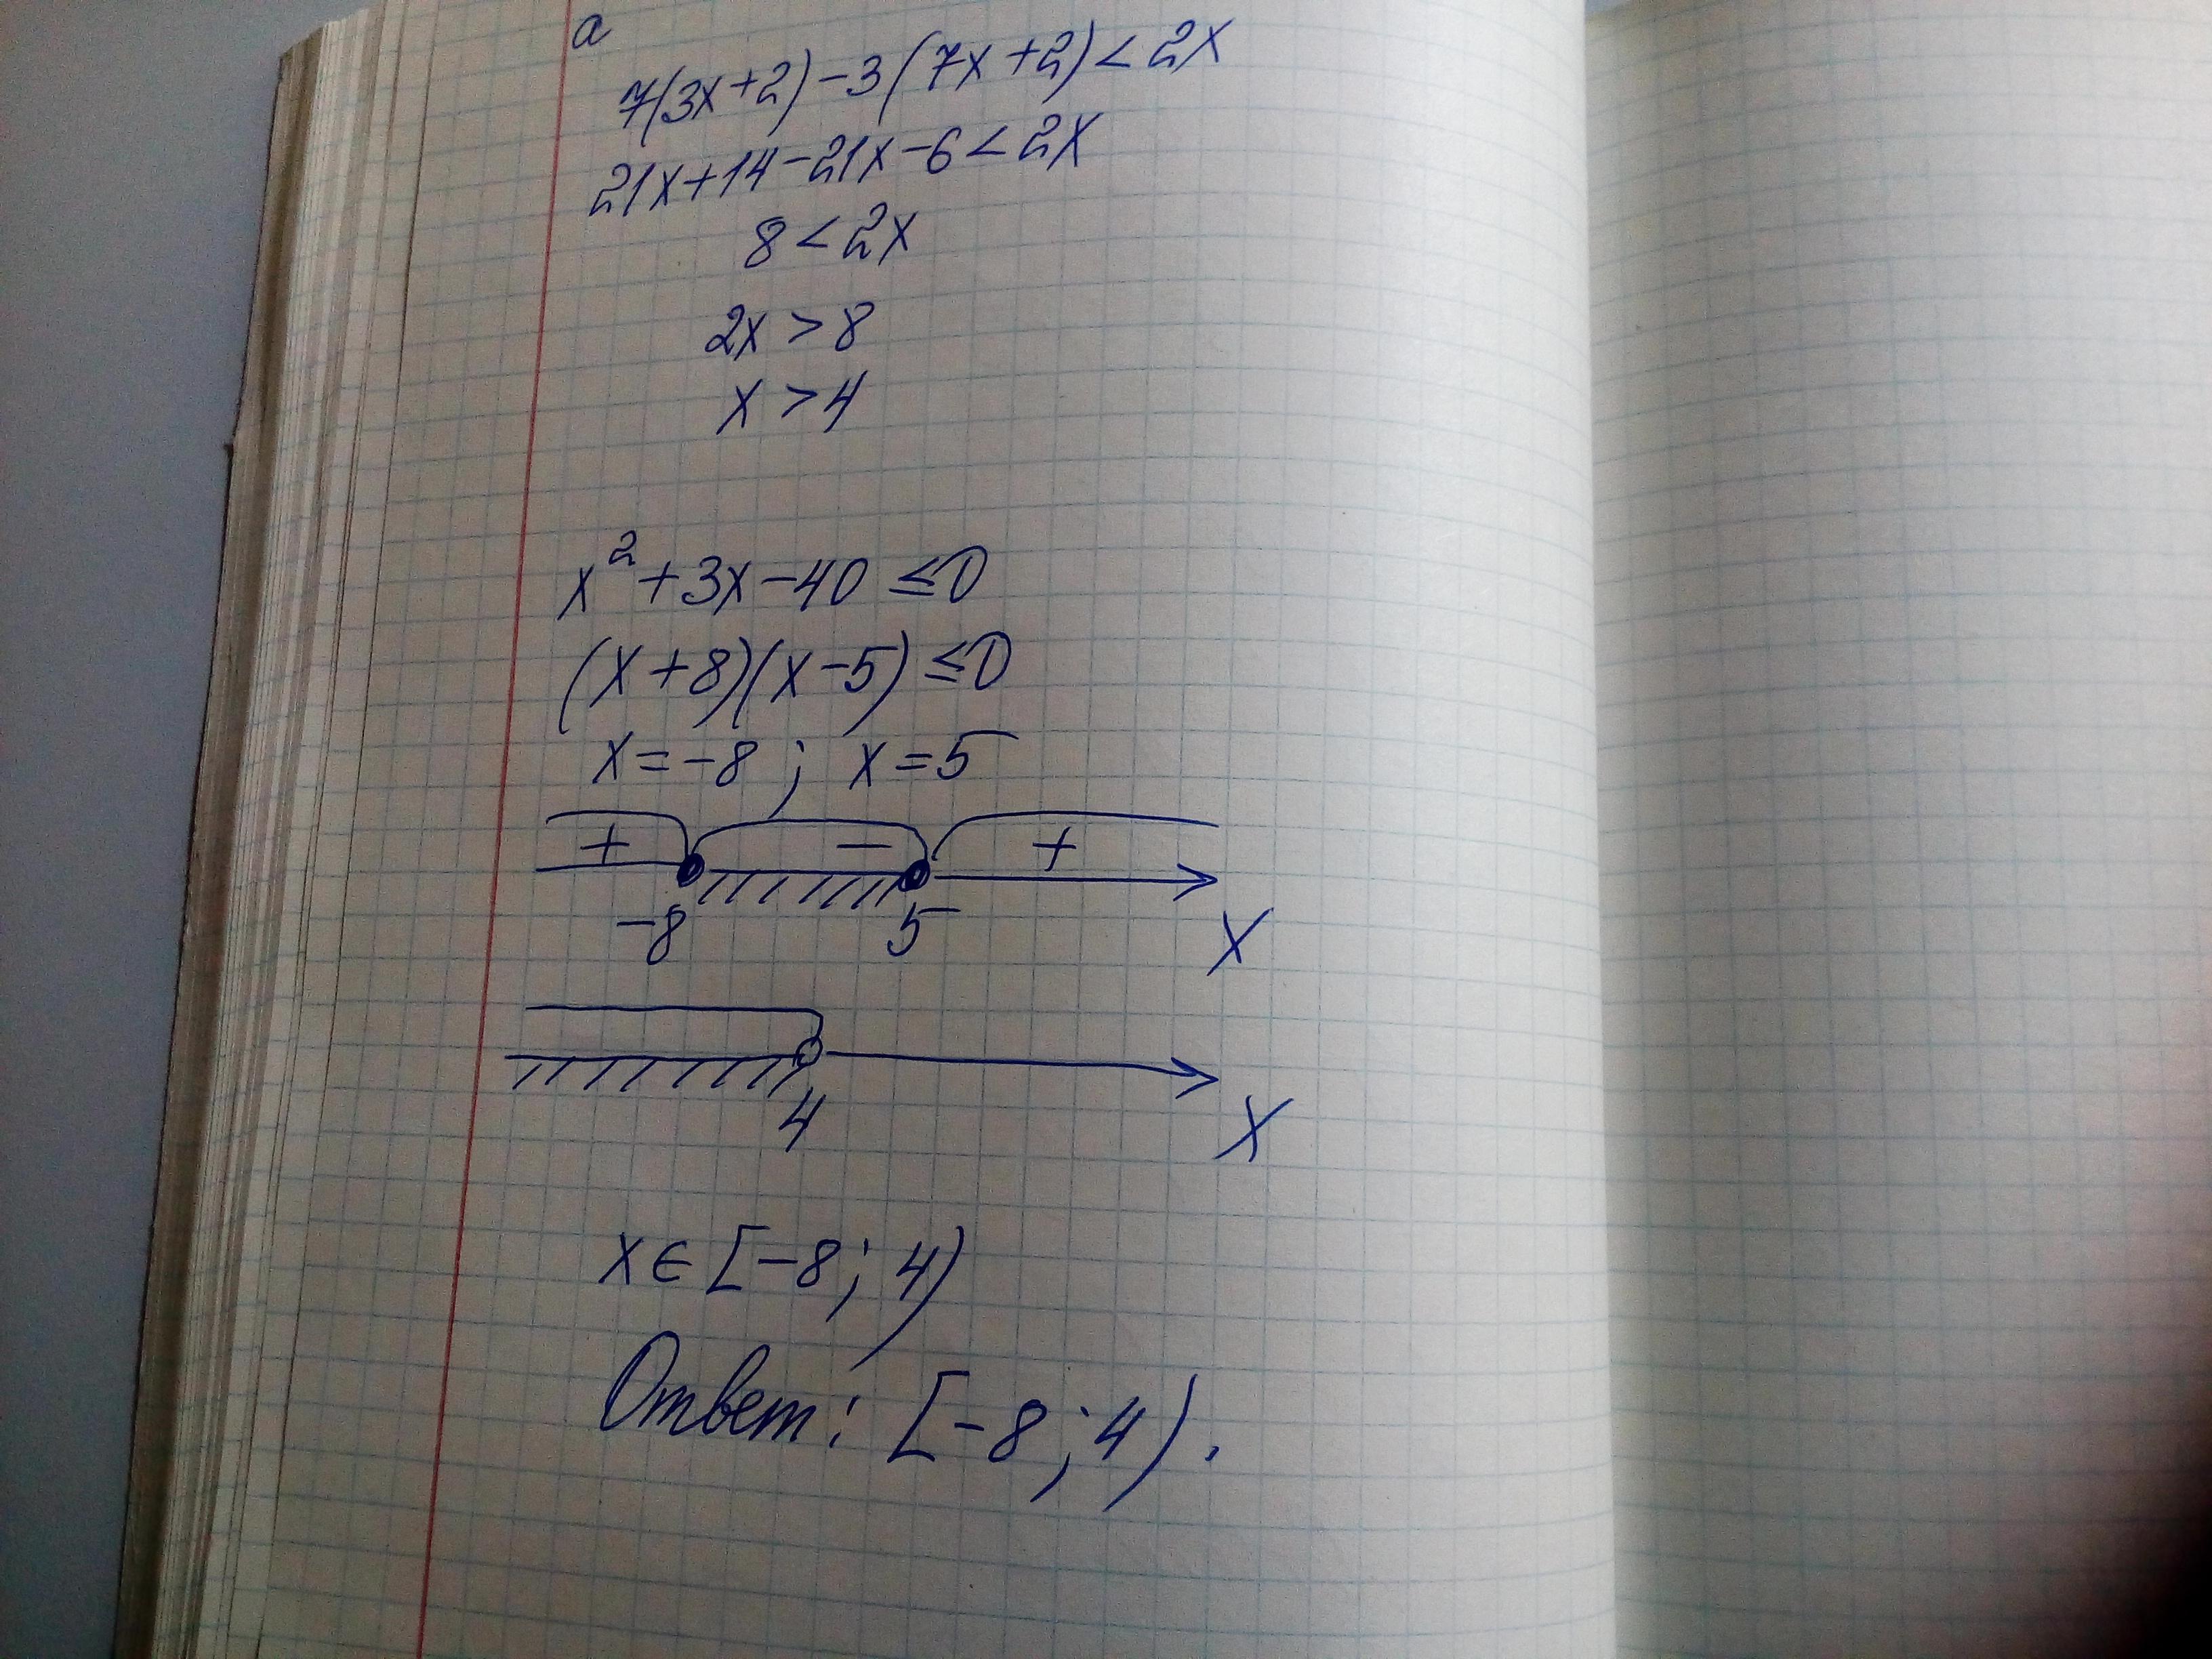 а
7(3x+2)-3(7x+2)<2x
21x+14-21x-6<2x
8<2x
2x>8
x>4
x²+3x-40≤0
(x+8)(x-5)≤0
x=-8; x=5
+ - +
-8 5 x
4 x
x∈[-8; 4)
Ответ: [-8; 4).